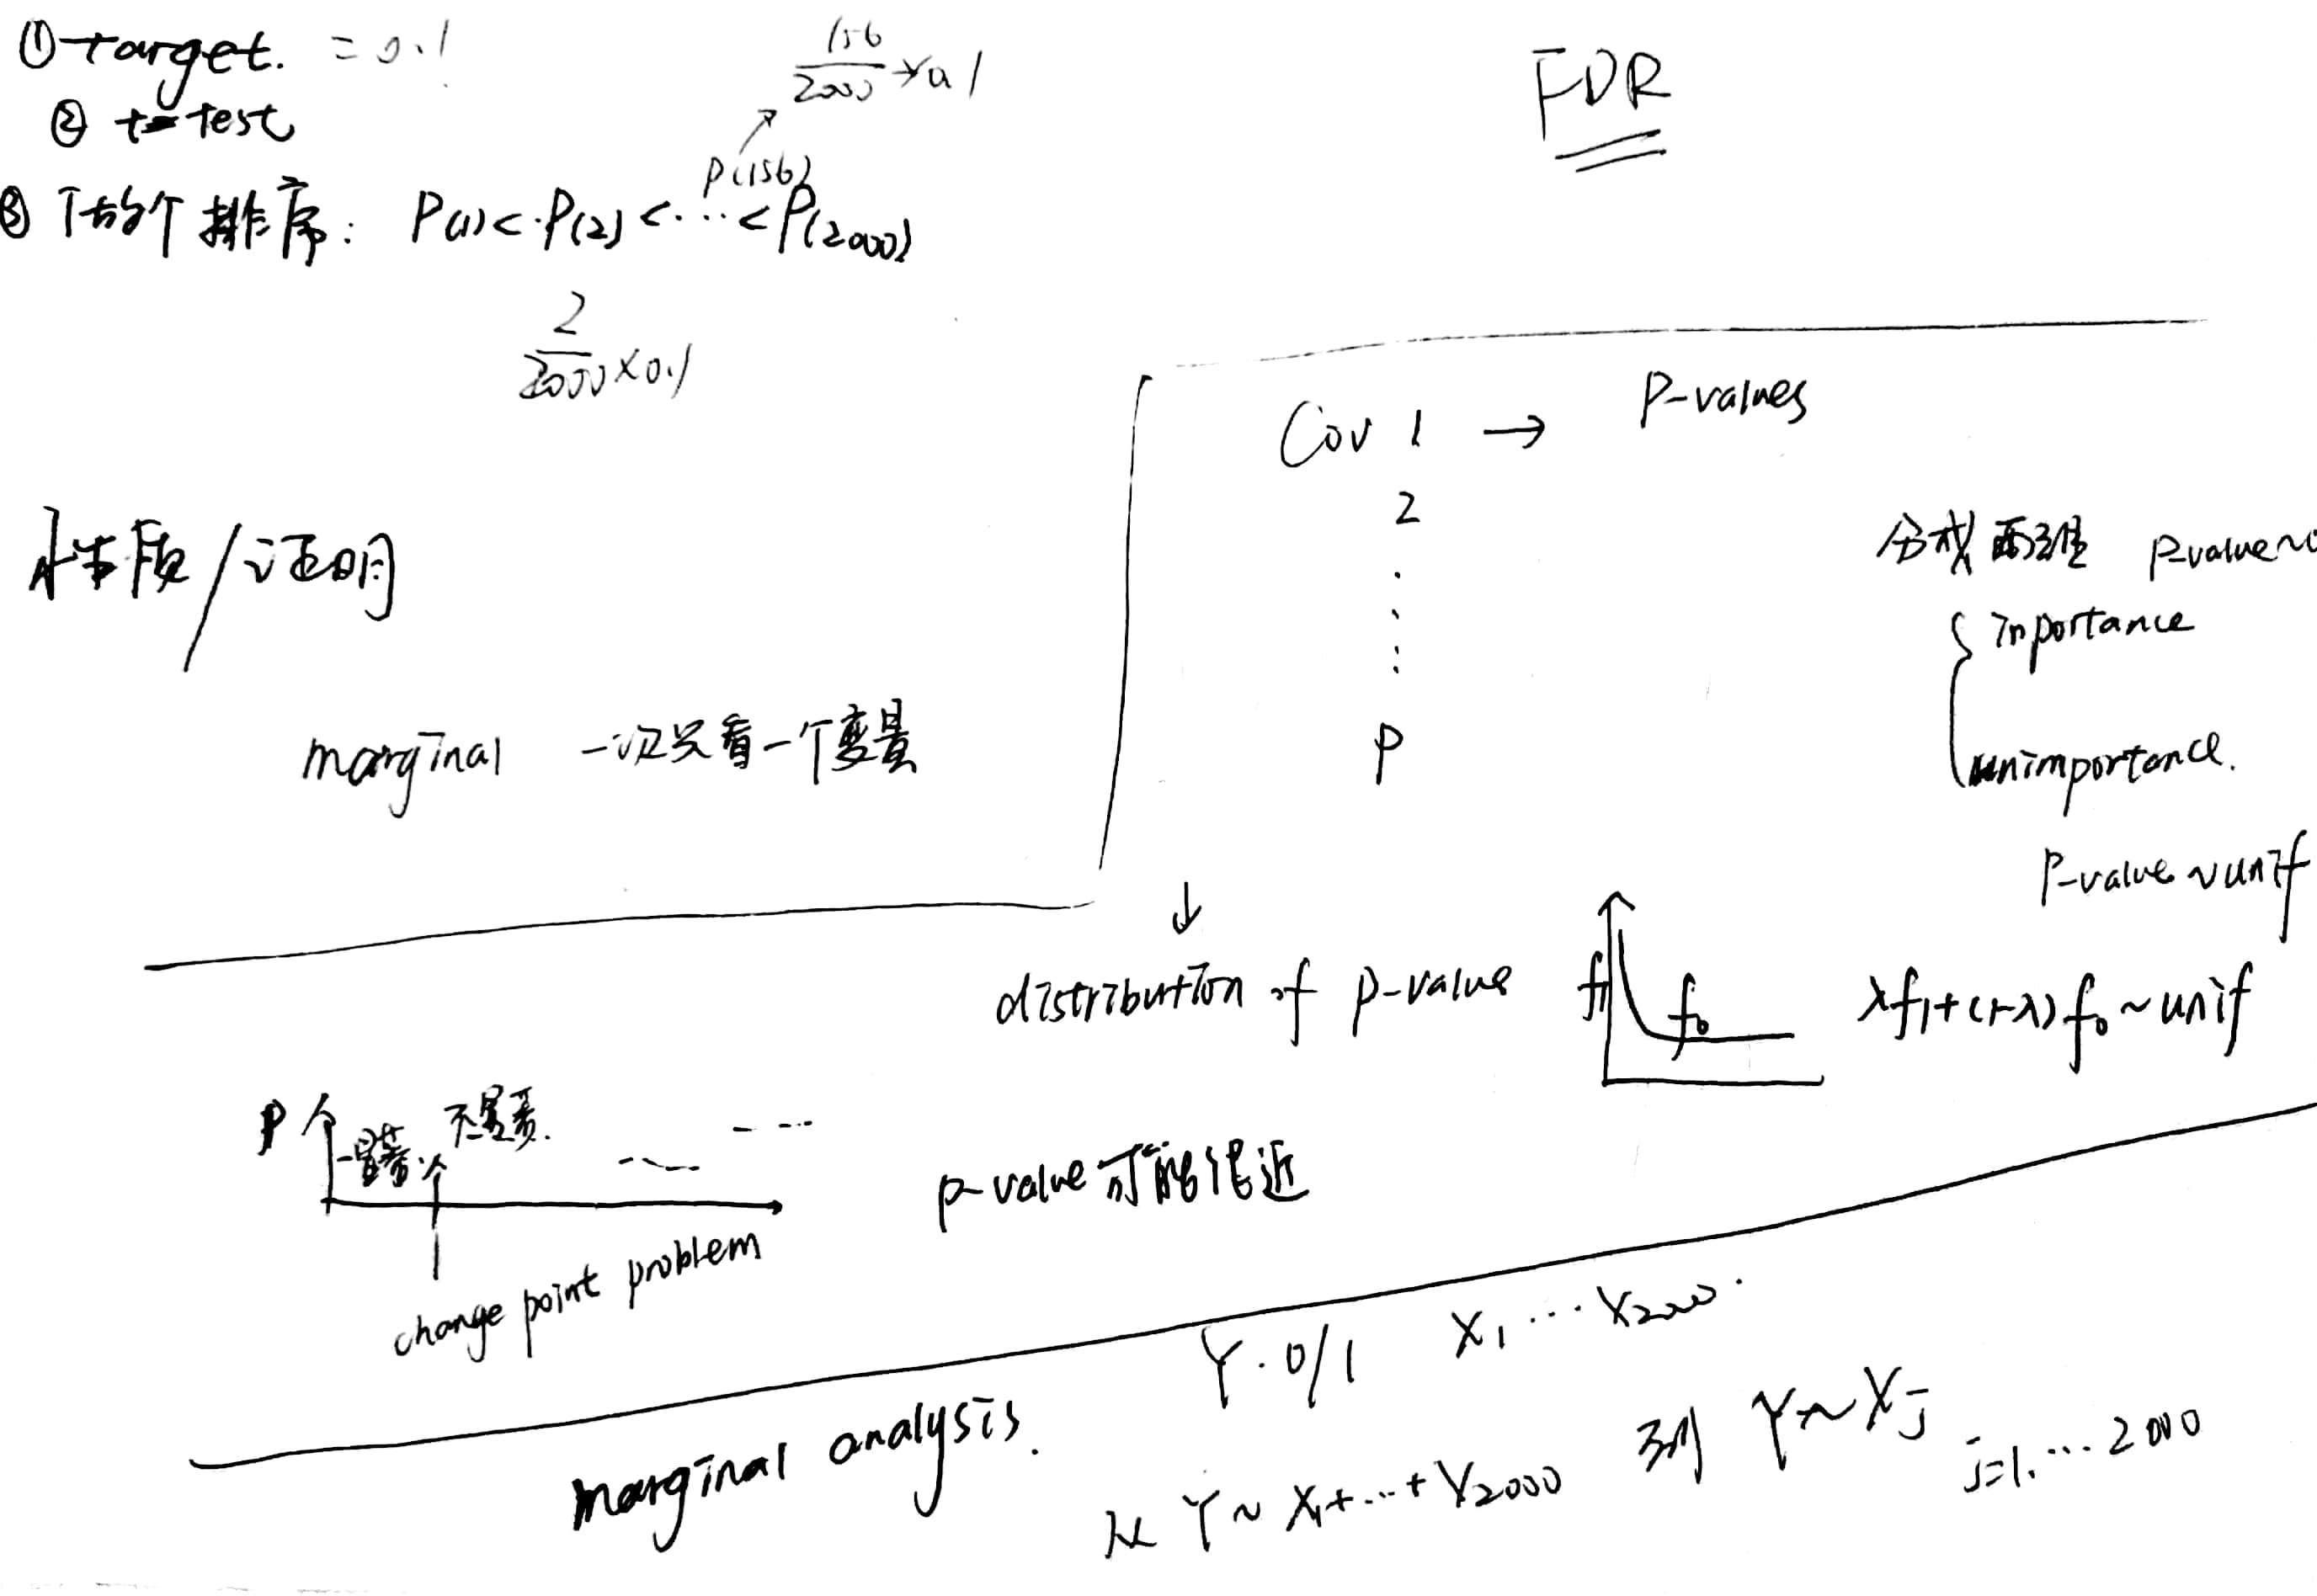 ① target. = 0.1
② t-test
③ 下的个 排序: P(1) < P(2) < ... < P(2000)
P(156)
156/2000 × 0.1
2/2000 × 0.1
FDR
性质/证明
marginal 一次只看一个变量
Cov 1 → P-values
2
.
:
:
P
分成两组 p-value ~
{ inportance
unimportance.
P-value ~ unif
↓
distribution of p-value
f1
f0
λf1+(1-λ)f0 ~ unif
P个
显著 不显著.
change point problem
p-value 可能很近
marginal analysis.
Y. 0/1 X1 ... X2000.
从 Y ~ X1+...+X2000 到 Y ~ Xj j=1, ... 2000